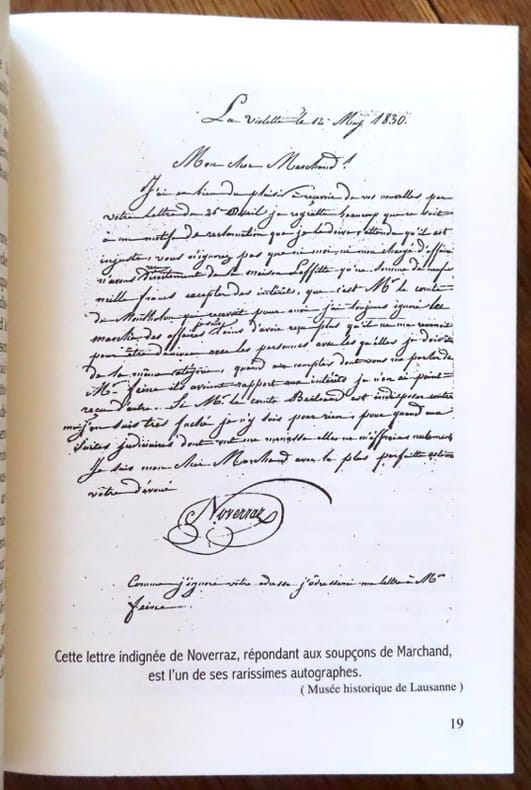 La violette le 12 May 1830.
Mon cher Marchand!
J'ai eu bien du plaisir à reçevoir de vos nouvelles par
votre lettre du 25 Avril je regrette beaucoup que ce soit
à un motif de reclamation que je la dois, attendu qu'il est
injuste, vous n'ignorez pas que ni moi, ni mon chargé d'affaire
n'avons directement de la maison Laffitte qu'une somme de neuf
mille francs excepter des intérêts, que c'est Mr le comte
de Montholon qui recevoit pour moi j'ai toujours ignoré les
marche des affaires, d'avoir reçu plus qu'il ne me revenoit
pour être d'niveau avec les personnes avec lesquelles je dois être
de la même catégorie, quand aux comptes dont vous me parlez de
Mr feine ils avaient rapport aux intérêts je n'en ai point
reçu d'autre. Si Mr le comte Bertrand est indisposé contre
moi j'en suis très fâché je n'y suis pour rien, pour quand aux
suites judiciaires dont ont me menasse elles ne m'effraies nulement
Je suis mon cher Marchand avec la plus parfaite estime
votre dévoué
Noverraz
Comme j'ignore votre adresse j'adresse ma lettre à Mr
feine
Cette lettre indignée de Noverraz, répondant aux soupçons de Marchand,
est l'un de ses rarissimes autographes.
( Musée historique de Lausanne )
19